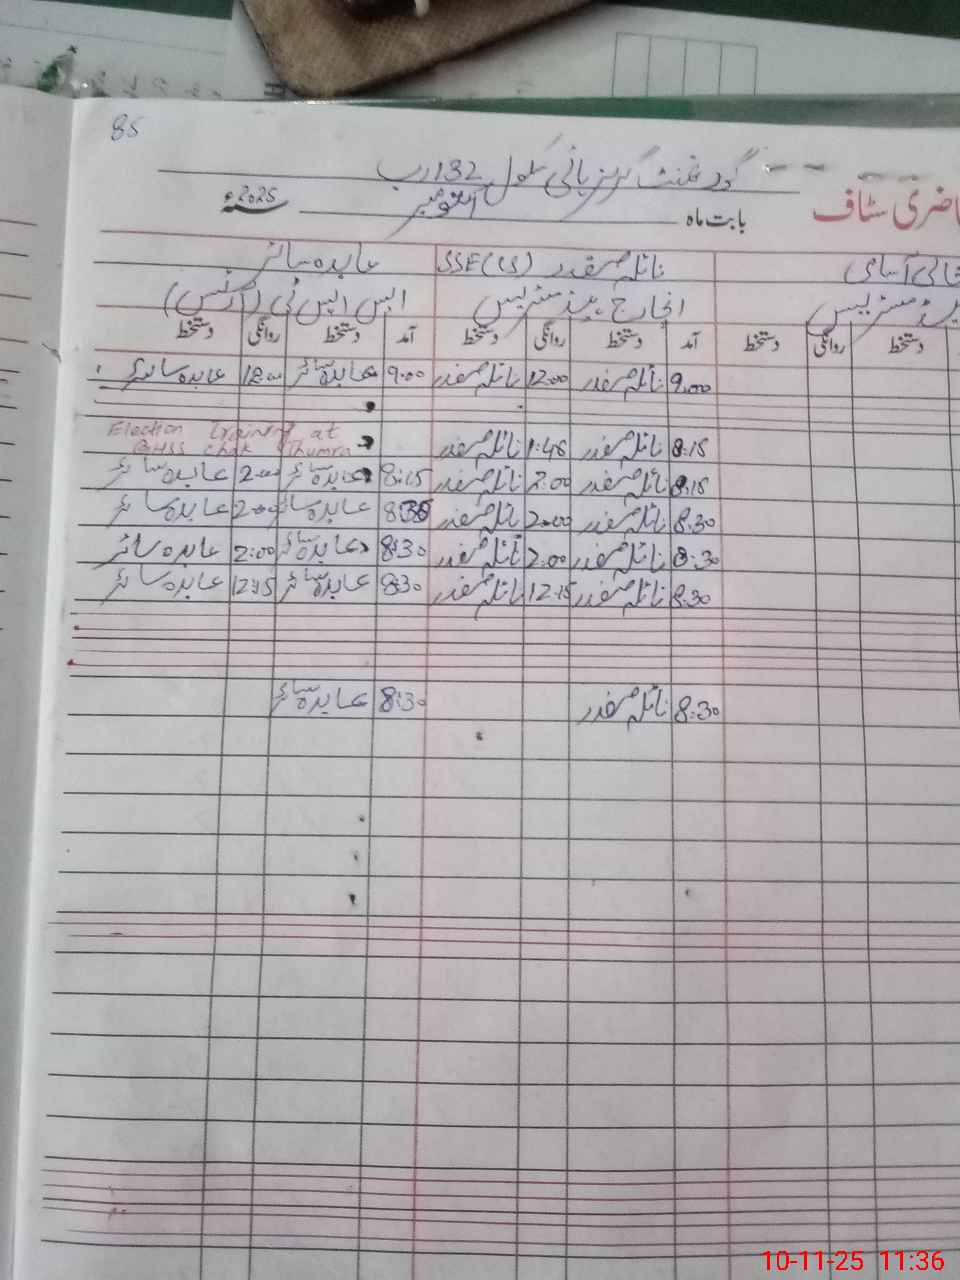 85
گورنمنٹ گرلز ہائی سکول 132 ر ب
حاضری سٹاف بابت ماہ نومبر 2025ء
خالی آسامی نائلہ صفدر SSE (CS) عابدہ سائر
ہیڈ مسٹریس انچارج ہیڈ مسٹریس ایس ایس ٹی (آرٹس)
دستخط روانگی دستخط آمد دستخط روانگی دستخط آمد دستخط روانگی دستخط
9:00 نائلہ صفدر 12:00 نائلہ صفدر 9:00 عابدہ سائر 12:00 عابدہ سائر
8:15 نائلہ صفدر 1:45 نائلہ صفدر Election training at
GHSS Chak Jhumra
8:15 نائلہ صفدر 2:00 نائلہ صفدر 8:15 عابدہ سائر 2:00 عابدہ سائر
8:30 نائلہ صفدر 2:00 نائلہ صفدر 8:30 عابدہ سائر 2:00 عابدہ سائر
8:30 نائلہ صفدر 2:00 نائلہ صفدر 8:30 عابدہ سائر 2:00 عابدہ سائر
8:30 نائلہ صفدر 12:15 نائلہ صفدر 8:30 عابدہ سائر 12:15 عابدہ سائر
8:30 نائلہ صفدر 8:30 عابدہ سائر
10-11-25 11:36